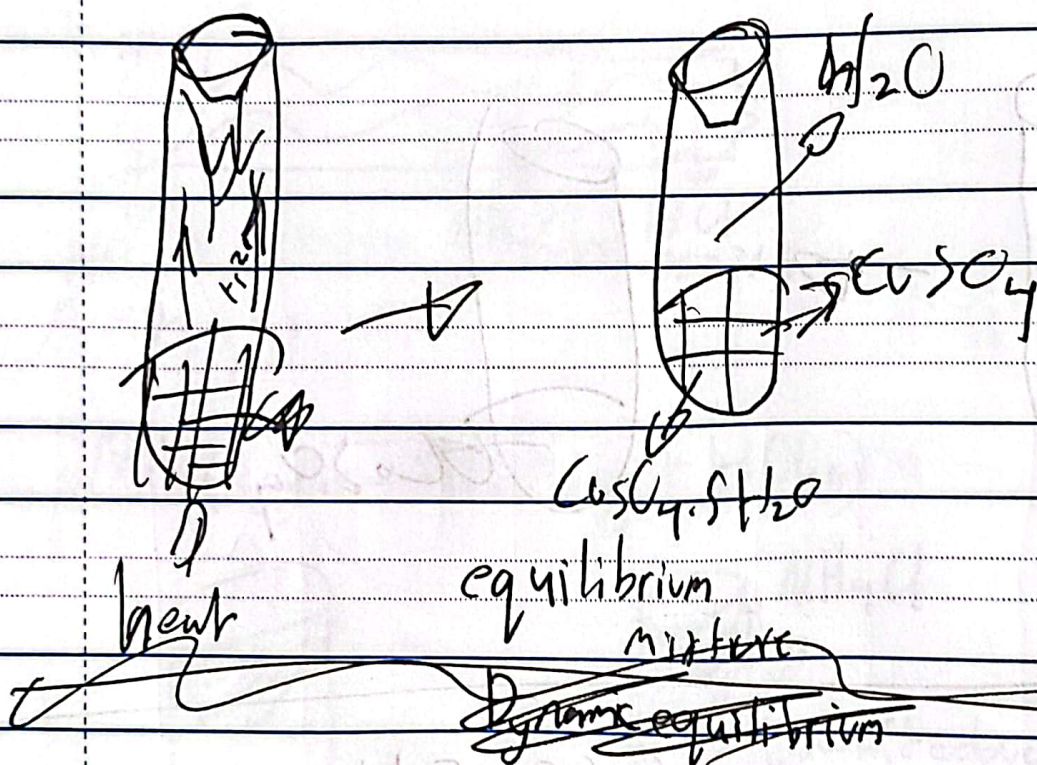 H₂O
CuSO₄
CuSO₄.5H₂O
heat
equilibrium
mixture
Dynamic equilibrium